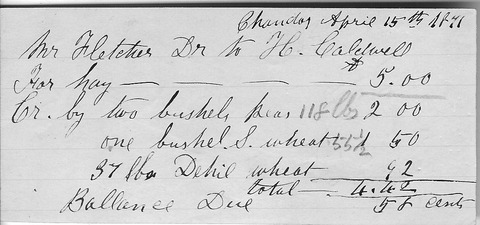 Chandos April 15th 1871
Mr Fletcher Dr to H. Caldwell
For hay $ 5.00
Cr. by two bushels peas 118 lbs 2 00
one bushel S. wheat 55 1/2 1 50
37 lbs Dehil wheat 92
total 4.42
Ballance Due 58 cents